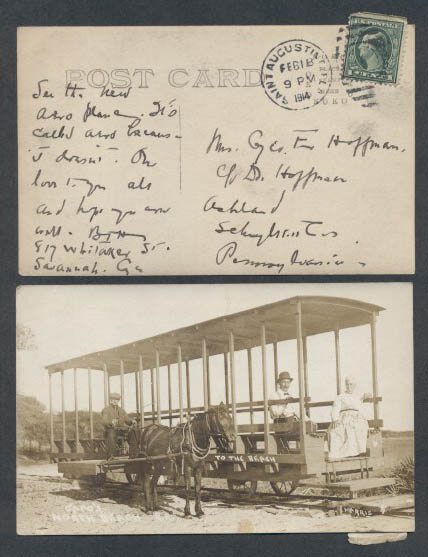 POST CARD
SAINT AUGUSTINE
FEB 18
9 PM
1914
See the new
aero plane. It's
called aero because
it doesn't.
love to you all
and hope you are
well.
817 Whitaker St.
Savannah. Ga
Mrs. Geo. F. Hoffman.
c/o D. Hoffman
Ashland
Schuylkill Co.
Pennsylvania
TO THE BEACH
NORTH BEACH
HARRIS